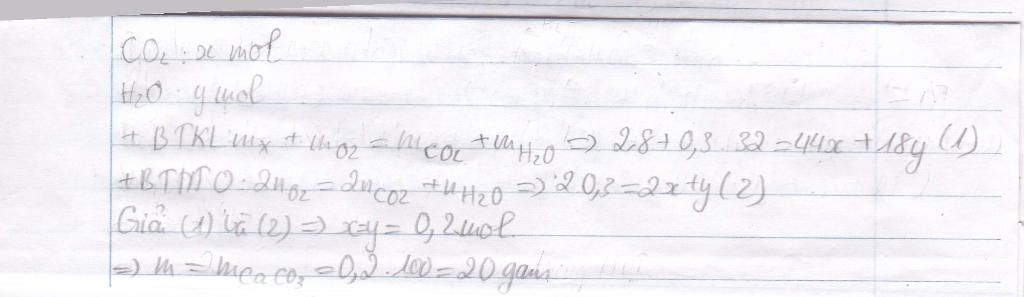 CO₂ : x mol
H₂O : y mol
+ BTKL: mₓ + m_O₂ = m_CO₂ + m_H₂O => 2,8 + 0,3 . 32 = 44x + 18y (1)
+ BTNT O: 2n_O₂ = 2n_CO₂ + n_H₂O => 2.0,3 = 2x + y (2)
Giải (1) và (2) => x=y = 0,2 mol
=> m = m_CaCO₃ = 0,2 . 100 = 20 gam